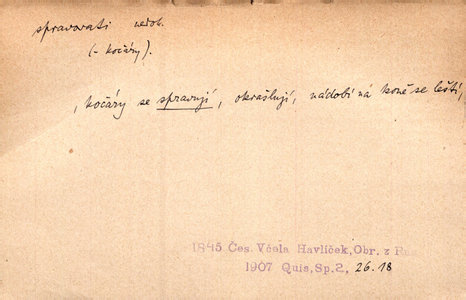 spravovati nedok.
(- kočáry).
, kočáry se spravují, okrašlují, nádobí na koně se leští,
1845 Čes. Včela Havlíček, Obr. z Rus
1907 Quis, Sp. 2, 26.18